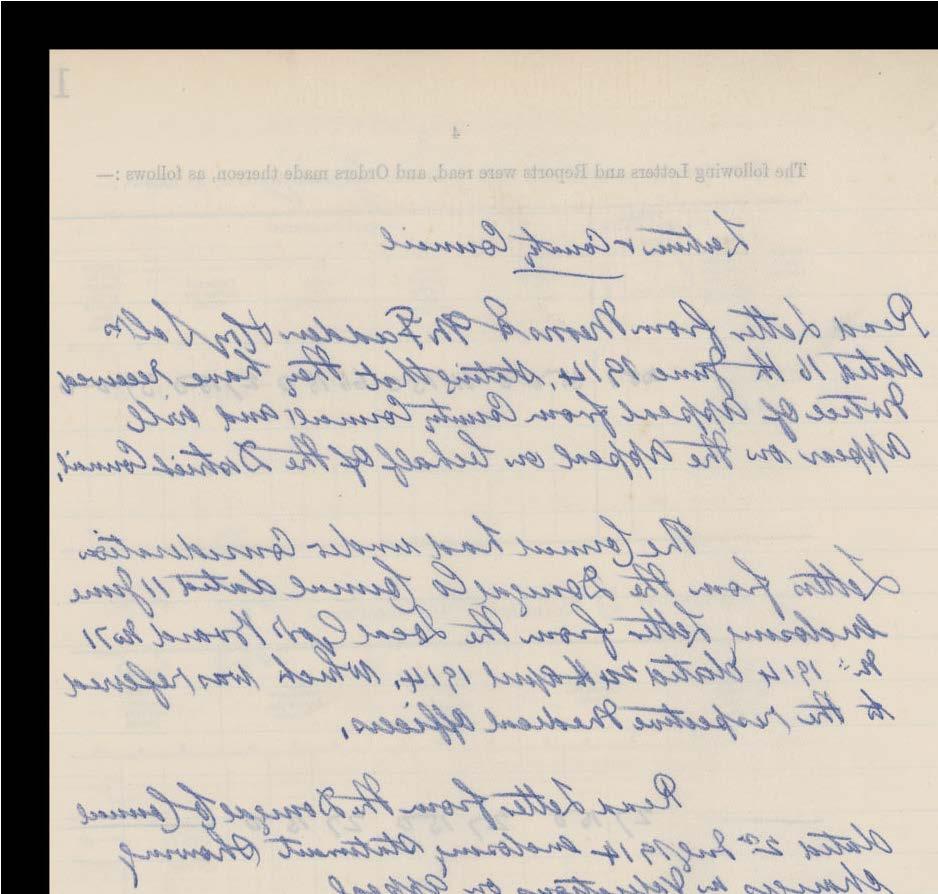 1
4
The following Letters and Reports were read, and Orders made thereon, as follows :—
County Council
Read Letter from Messrs McFadden Solrs
dated 16th June 1914, stating that they have received
Notice of Appeal from County Council and will
appear on the Appeal on behalf of the District Council.
The Council had under Consideration
Letter from the Donegal Co Council dated 11 June
enclosing Letter from the Local Govt Board No 71
1914 dated April 1914, which was referred
to the respective Medical Officers.
Read Letter from the Donegal Co Council
dated 2nd July 1914 enclosing Statement showing
on Appeal